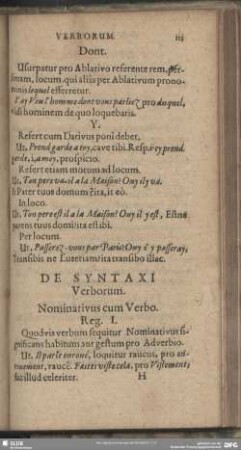 VERBORUM 113
Dont.
Usurpatur pro Ablativo referente rem, per-
sonam, locum, qui aliis per Ablativum prono-
minis lequel efferretur.
I'ay veu l'homme dont vous parliez pro duquel,
vidi hominem de quo loquebaris.
Y.
Refert cum Dativus poni debet,
Ut, Prend garde a toy, cave tibi. Resp. i'y prend
garde, i, a moy, prospicio.
Refert etiam motum ad locum.
Ut, Ton pere va-il a la Maison? Ouy il y va.
It Pater tuus domum? ita, it eò.
In loco.
Ut, Ton pere est il a la Maison? Ouy il y est, Estne
pater tuus domi? ita est ibi.
Per locum.
Ut, Passerez-vous par Paris? Ouy i' y passeray,
transibis ne Lutetiam? ita transibo illac.
DE SYNTAXI
Verborum.
Nominativus cum Verbo.
Reg. I.
Quodvis verbum sequitur Nominativus si-
gnificans habitum aut gestum pro Adverbio.
Ut, Il parle enroué, loquitur raucus, pro en-
rouement, raucè. Faites viste cela, pro Vistement,
fac illud celeriter. H